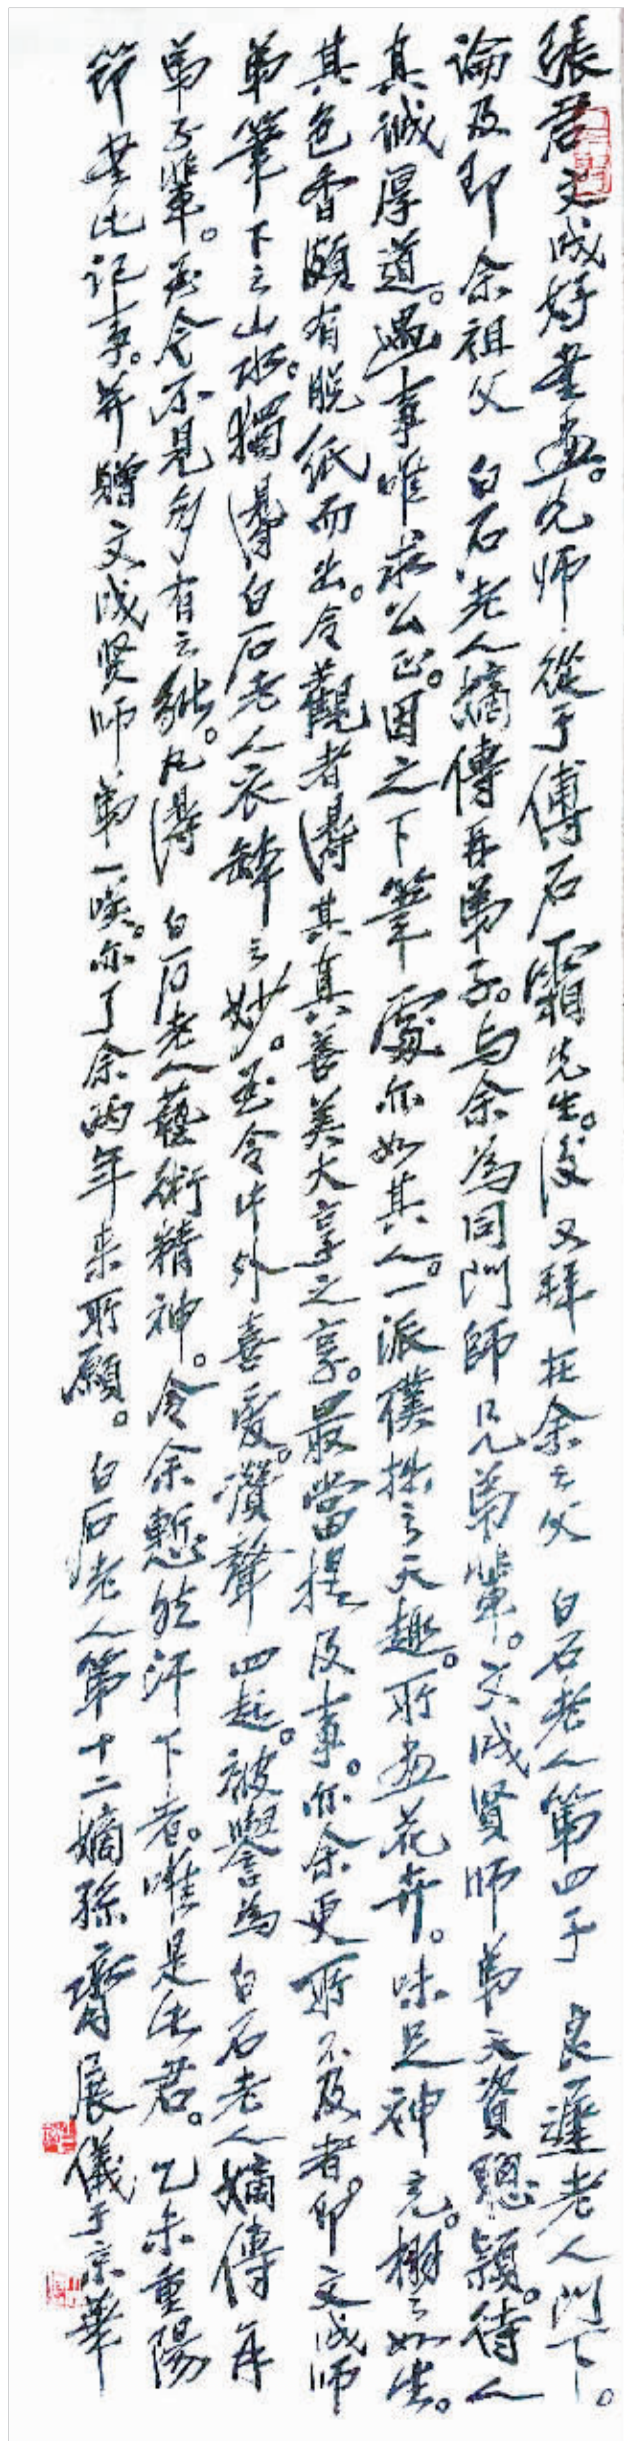 張君文成好畫畫。先师從于傅石霜先生。後又拜在余之父 白石老人第四子 良遲老人門下。
論及即余祖父 白石老人嫡傳再弟子。与余為同門師兄弟輩。文成贤师弟天資聰颖。待人
真诚厚道。遇事唯求公正。因之下筆處亦如其人。一派樸拙之天趣。所畫花卉。味足神充。栩栩如生。
其色香颇有脱纸而出。令觀者得其真善美大享之享。最當提及事。亦余更所不及者。即文成师
弟筆下之山水。獨得白石老人衣缽之妙。至令中外喜爱。讚聲四起。被譽為白石老人嫡傳再
弟子輩。至今不見多有之。凡得 白石老人藝術精神。令余慙然汗下者。唯是此君。乙未重陽
節書此記事。并贈文成贤师弟一笑。亦了余两年来所願。白石老人第十二嫡孫齊展儀于京華